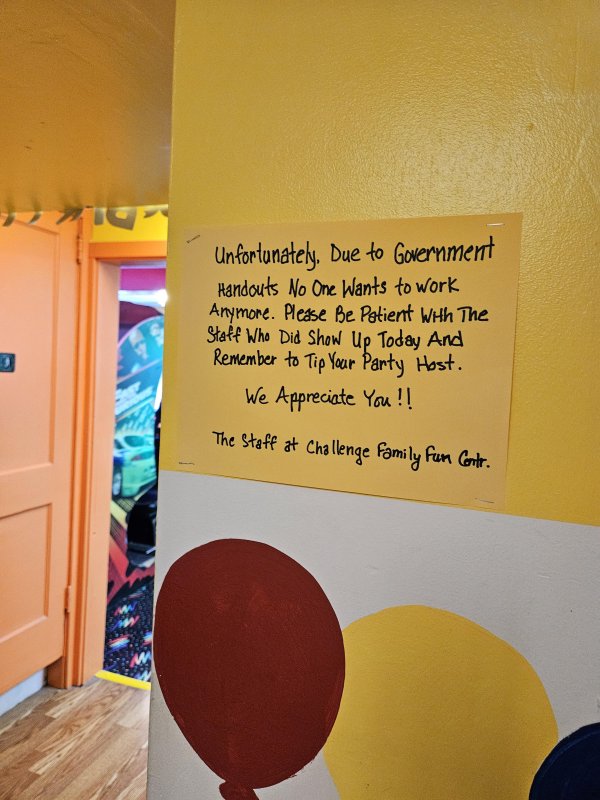 Unfortunately, Due to Government
Handouts No One Wants to Work
Anymore. Please Be Patient With The
Staff Who Did Show Up Today And
Remember to Tip Your Party Host.
We Appreciate You!!
The Staff at Challenge Family Fun Centr.